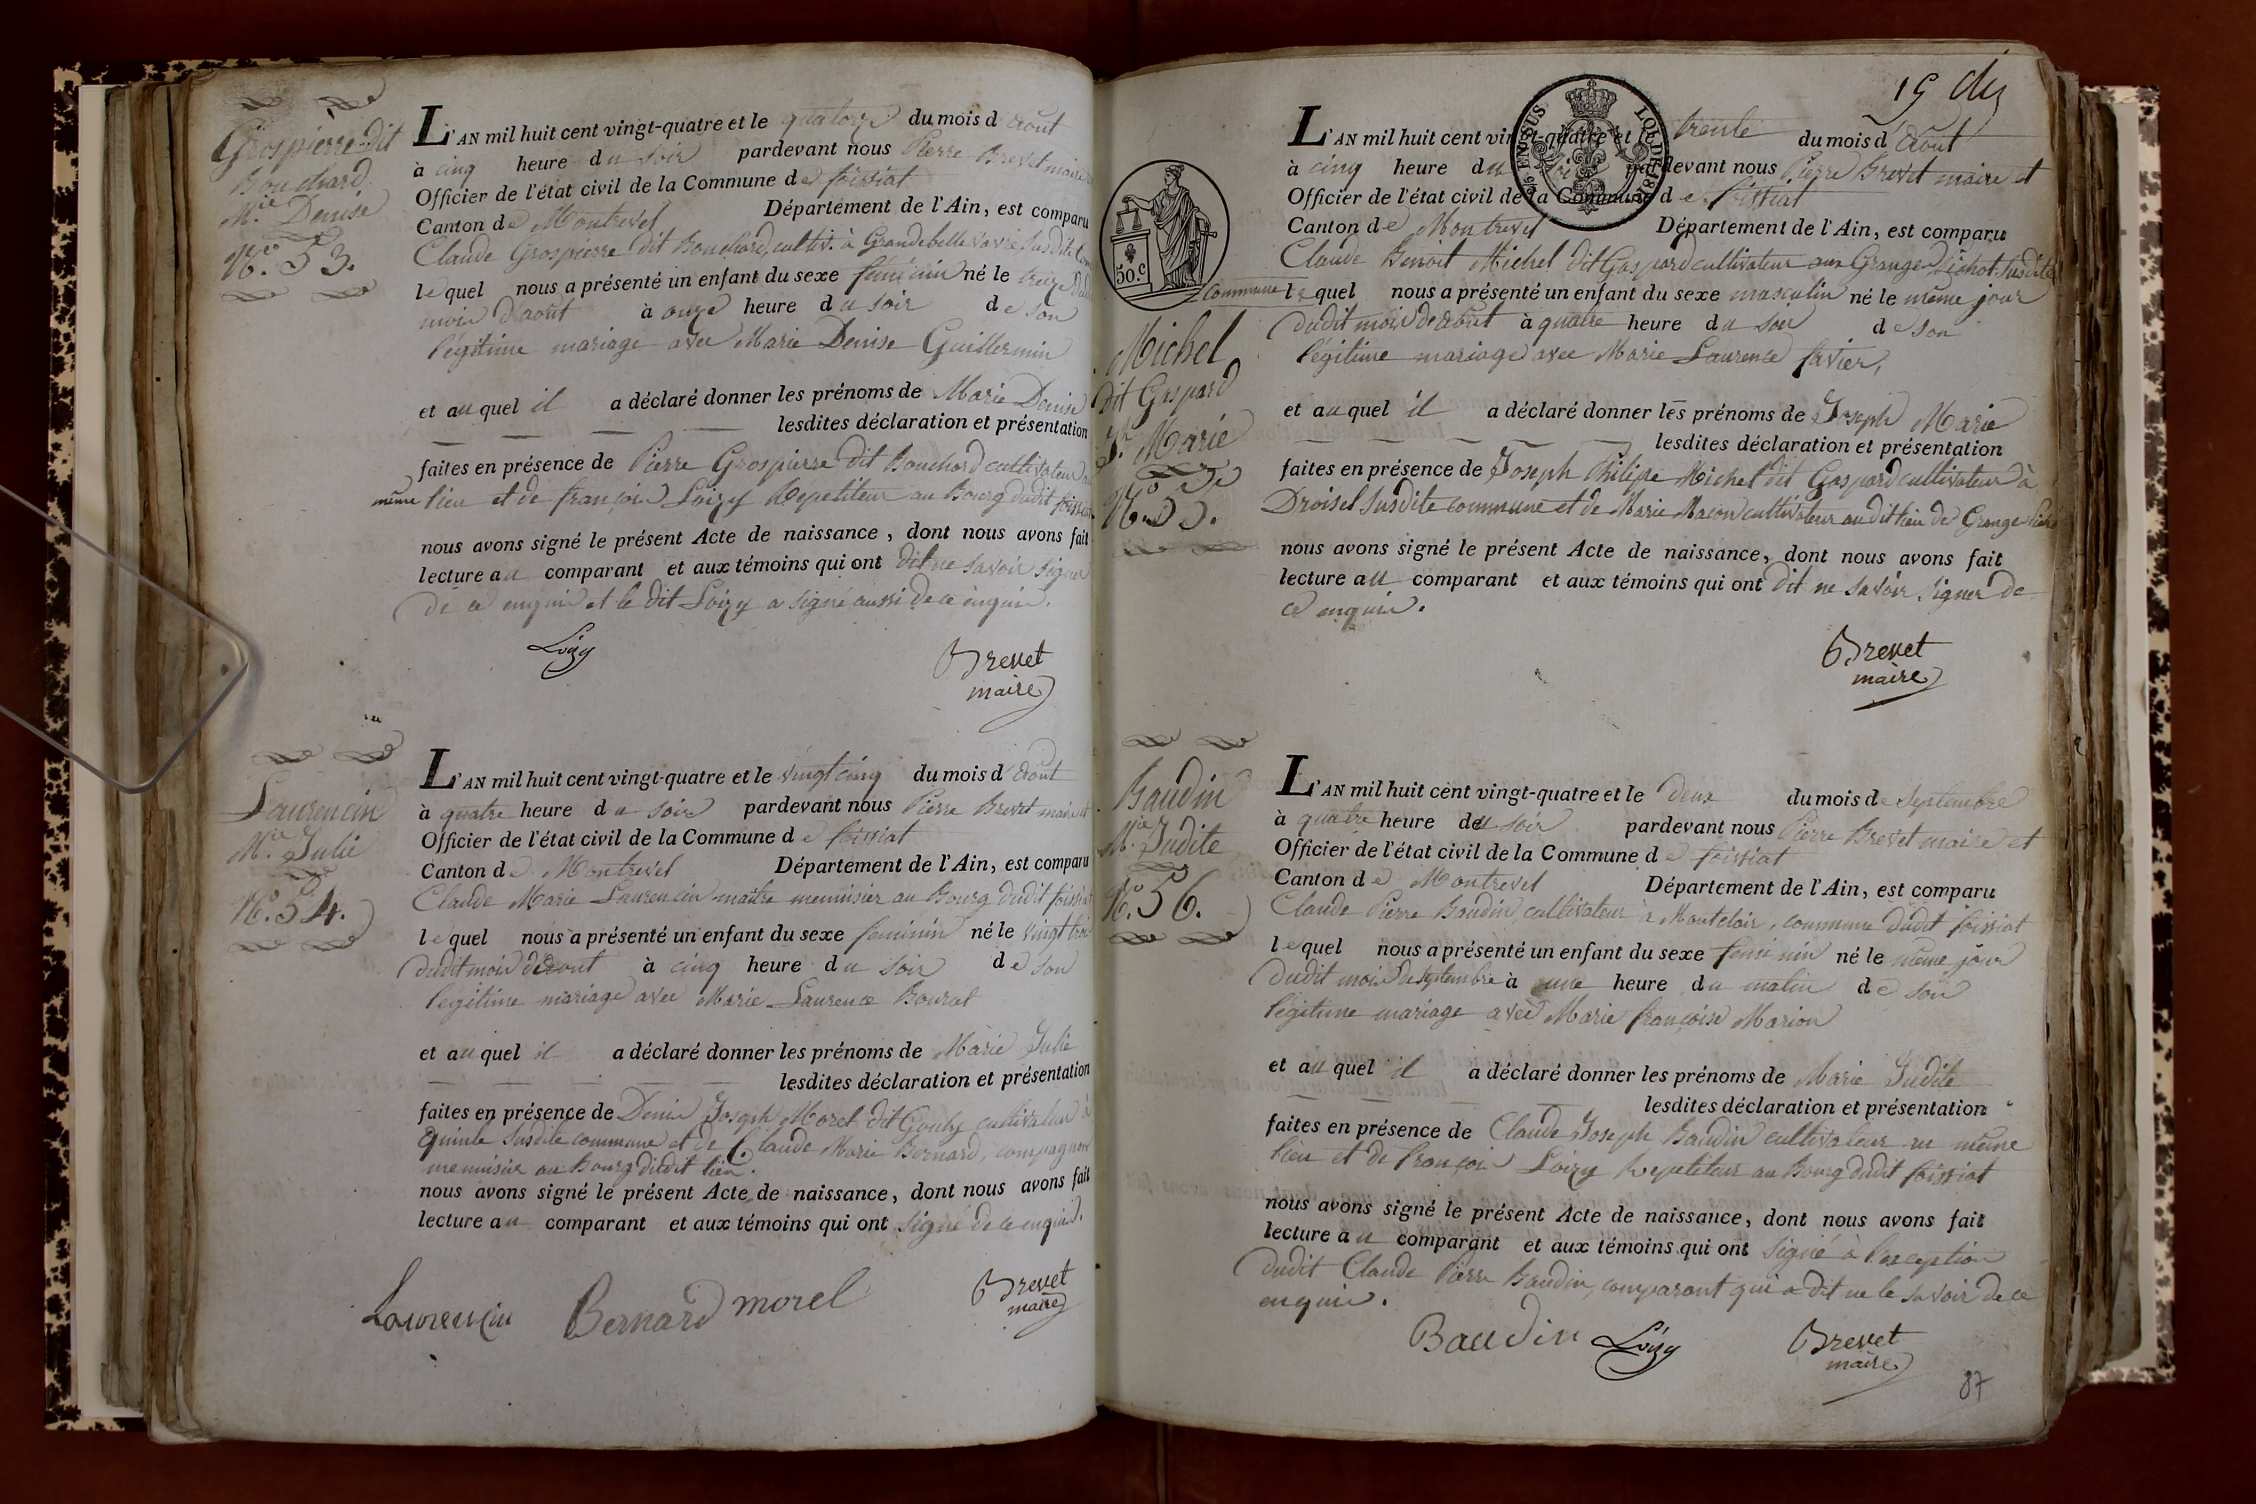 Grospierre dit
Bouchard
M.ie Denise
N.o 53.
L'AN mil huit cent vingt-quatre et le quatorze du mois d'août
à cinq heure du soir pardevant nous Pierre Brevet maire
Officier de l'état civil de la Commune de foissiat
Canton de Montrevel Département de l'Ain, est comparu
Claude Grospierre dit Bouchard, cultiv. à Grandebellevavre susdite
lequel nous a présenté un enfant du sexe féminin né le treize
mois d'août à onze heure du soir de son
légitime mariage avec Marie Denise Guillermin
et auquel il a déclaré donner les prénoms de Marie Denise
lesdites déclaration et présentation
faites en présence de Pierre Grospierre dit Bouchard cultivateur au
même lieu et de françois Loizy Repetiteur au Bourg dudit foissiat
nous avons signé le présent Acte de naissance, dont nous avons fait
lecture au comparant et aux témoins qui ont dit ne savoir signer
de ce enquis et le dit Loizy a signé aussi de ce enquis.
Loizy
Brevet
maire
Laurencin
M.ie Julie
N.o 54.
L'AN mil huit cent vingt-quatre et le vingt cinq du mois d'août
à quatre heure du soir pardevant nous Pierre Brevet maire et
Officier de l'état civil de la Commune de foissiat
Canton de Montrevel Département de l'Ain, est comparu
Claude Marie Laurencin maître menuisier au Bourg dudit foissiat
lequel nous a présenté un enfant du sexe feminin né le vingt trois
dudit mois d'août à cinq heure du soir de son
légitime mariage avec Marie Laurence Bourat
et auquel il a déclaré donner les prénoms de Marie Julie
lesdites déclaration et présentation
faites en présence de Denis Joseph Morel dit Gouly cultivateur à
Quinte susdite commune et de Claude Marie Bernard, compagnon
menuisier au Bourg dudit lieu.
nous avons signé le présent Acte de naissance, dont nous avons fait
lecture au comparant et aux témoins qui ont signé de ce enquis.
Laurencin Bernard morel
Brevet
maire
19 dix
50.c
EN SUS LOI DE 181
Michel
dit Gaspard
J.h Marie
N.o 55.
L'AN mil huit cent vingt-quatre et le trente du mois d'Août
à cinq heure du soir pardevant nous Pierre Brevet maire et
Officier de l'état civil de la Commune de foissiat
Canton de Montrevel Département de l'Ain, est comparu
Claude Benoit Michel dit Gaspard cultivateur aux Granges Pichot susdite
commune lequel nous a présenté un enfant du sexe masculin né le même jour
dudit mois d'août à quatre heure du soir de son
légitime mariage avec Marie Laurence favier,
et auquel il a déclaré donner les prénoms de Joseph Marie
lesdites déclaration et présentation
faites en présence de Joseph Philipe Michel dit Gaspard cultivateur à
Droisel susdite commune et de Marie Macon cultivateur audit lieu de Grange
nous avons signé le présent Acte de naissance, dont nous avons fait
lecture au comparant et aux témoins qui ont dit ne savoir signer de
ce enquis.
Brevet
maire
Baudin
M.ie Judite
N.o 56.
L'AN mil huit cent vingt-quatre et le deux du mois de septembre
à quatre heure du soir pardevant nous Pierre Brevet maire et
Officier de l'état civil de la Commune de foissiat
Canton de Montrevel Département de l'Ain, est comparu
Claude Pierre Baudin, cultivateur à Montclair, commune dudit foissiat
lequel nous a présenté un enfant du sexe feminin né le même jour
dudit mois de septembre à une heure du matin de son
légitime mariage avec Marie françoise Marion
et auquel il a déclaré donner les prénoms de Marie Judite
lesdites déclaration et présentation
faites en présence de Claude Joseph Baudin cultivateur au même
lieu et de françois Loizy Repetiteur au Bourg dudit foissiat
nous avons signé le présent Acte de naissance, dont nous avons fait
lecture au comparant et aux témoins qui ont signé à l'exception
dudit Claude Pierre Baudin, comparant qui a dit ne le savoir de ce
enquis.
Baudin Loizy
Brevet
maire
87